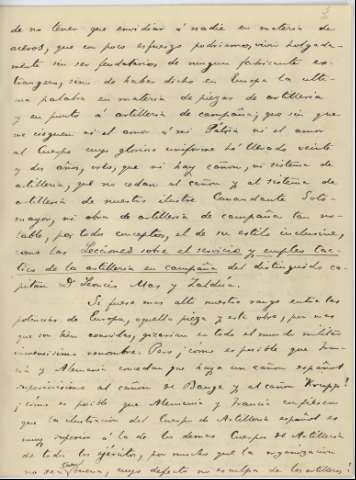 3
de no tener que envidiar á nadie en materia de
aceros, que con poco esfuerzo podriamos vivir holgada-
mente sin ser feudatarios de ningun fabricante es-
trangero, sino de haber dicho en Europa la ulti-
ma palabra en materia de piezas de artilleria
y en punto á artilleria de campaña; pues sin que
me cieguen ni el amor á mi Patria ni el amor
al Cuerpo cuyo glorioso uniforme hé llevado veinte
y dos años, creo, que ni hay cañon, ni sistema de
artilleria, que no cedan al cañon y al sistema de
artilleria de nuestro ilustre Comandante Soto-
mayor, ni obra de artilleria de campaña tan no-
table, por todos conceptos, el de su estilo inclusive,
como las Lecciones sobre el servicio y empleo tac-
tico de la artilleria en campaña del distinguido ca-
pitan Dn Leoncio Mas y Zaldúa.
Si fuese mas alto nuestro rango entre las
potencias de Europa, aquella pieza y esta obra, por mas
que son bien conocidas, gozarian en todo el mundo militar
inmensisimo renombre. Pero ¡cómo es posible que Fran-
cia y Alemania concedan que haya un cañon español
superiorisimo al cañon de Bange y al cañon Krupp!
¡cómo es posible que Alemania y Francia confiesen
que la ilustracion del Cuerpo de Artilleria español es
muy superior á la de los demas Cuerpos de Artilleria
de todos los ejércitos, por mucho que la organizacion
no sea buena, cuyo defecto no es culpa de los artilleros!